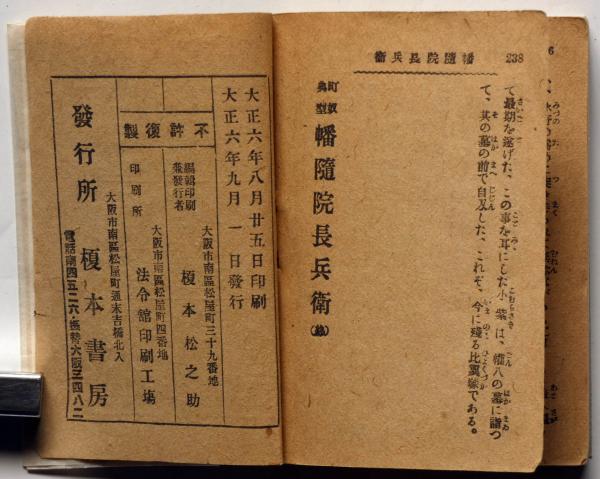 238
幡隨院長兵衞
て最期を遂げた、この事を耳にした小紫は、權八の墓に詣つ
て、其の墓の前で自刄した、これぞ、今に殘る比翼塚である。
町奴
典型
幡隨院長兵衞
(終)
大正六年八月廿五日印刷
大正六年九月一日發行
不許復製
大阪市南區松屋町三十九番地
編輯印刷
兼發行者
榎本松之助
大阪市南區松屋町四番地
印刷所
法令舘印刷工塲
大阪市南區松屋町通末吉橋北入
發行所
榎本書房
電話南四五二六・振替大阪三四八二